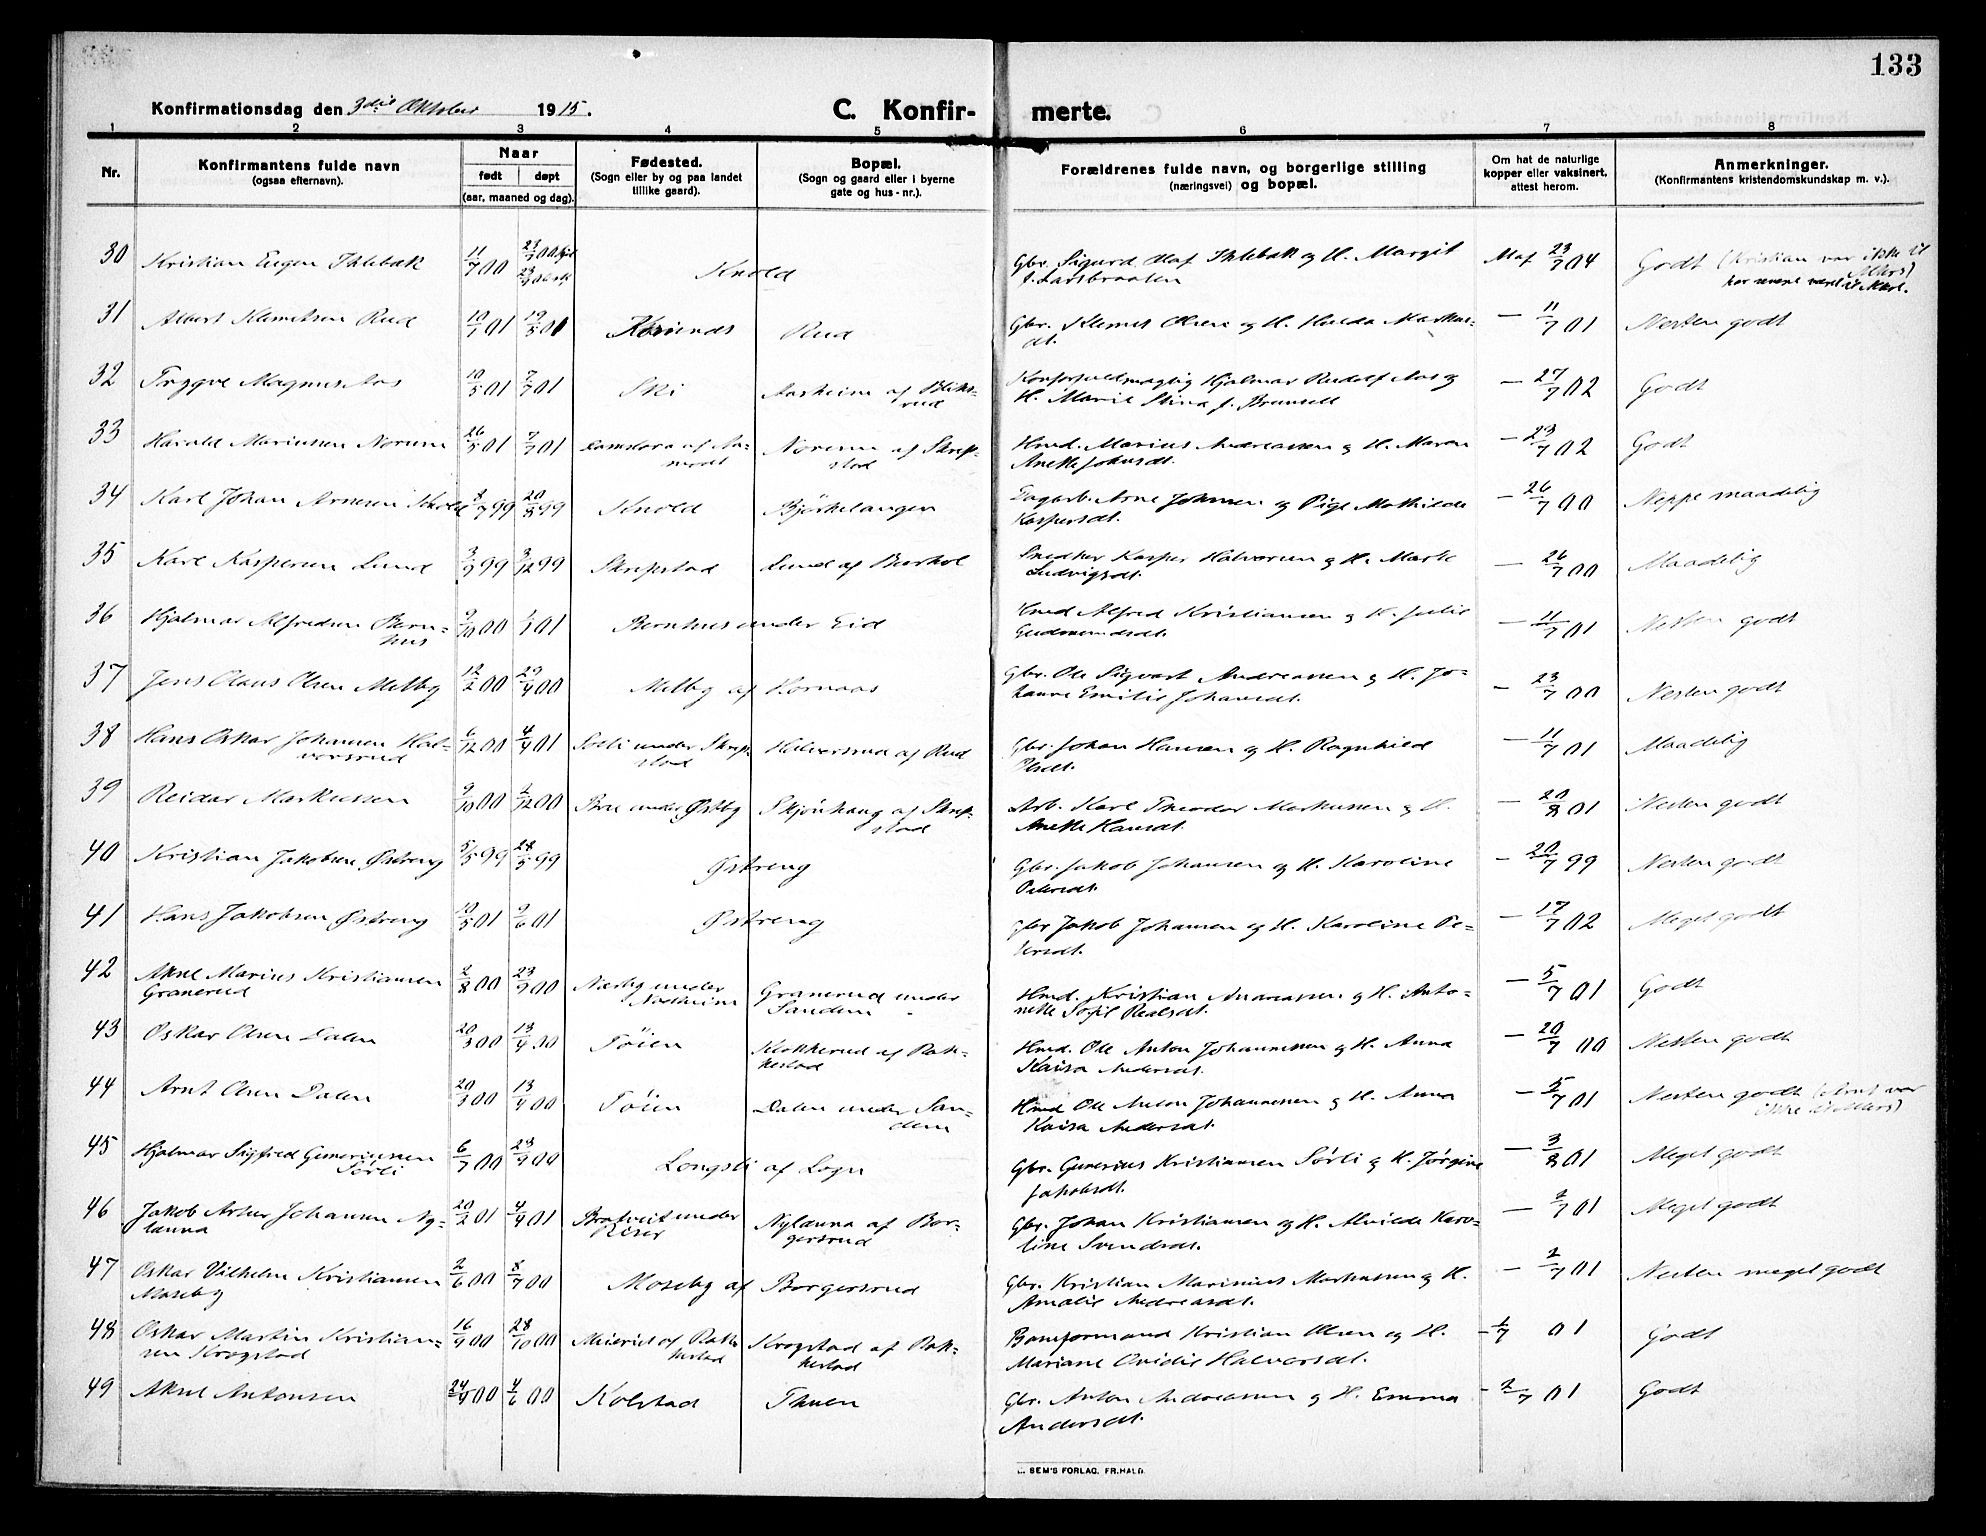 133
Konfirmationsdag den 3die Oktober 1915.
C. Konfirmerte.
1 2 3 4 5 6 7 8
Nr.
Konfirmantens fulde navn
(ogsaa efternavn).
Naar
født døpt
(aar, maaned og dag).
Fødested.
(Sogn eller by og paa landet
tillike gaard).
Bopæl.
(Sogn og gaard eller i byerne
gate og hus-nr.).
Forældrenes fulde navn, og borgerlige stilling
(næringsvei) og bopæl.
Om hat de naturlige
kopper eller vaksinert,
attest herom.
Anmerkninger.
(Konfirmantens kristendomskundskap m. v.).
30 Kristian Eugen Ihlebæk 11/7 00 Knold Gbr. Sigurd Olaf Ihlebæk og H. Margit 23/7 04 Godt (Kristian var ikke til
f. Larsbraaten Mars)
31 Albert Klemetsen Rud 10/7 01 Rud Gbr. Klemet Olsen og H. Hulda Markus- – 11/7 01 Nesten godt
dt.
32 Trygve Magnus Aas 10/5 01 7/7 01 Ski Aasheim af Bliks- Hjalmar Rudolf Aas og – 27/7 02 Godt
rud H. Marie Stina f. Brunsell
33 Harald Mariussen Norum 26/5 01 7/7 01 Norum af Skrep- Hmd. Marius Andreassen og H. Maren – 23/7 02 Godt
stad Anette Johnsdt.
34 Karl Johan Arnesen 8/7 99 20/8 99 Knold Bjørkelangen Dagarb. Arne Johnsen og Pige Mathilde – 26/7 00 Neppe maadelig
Kaspersdt.
35 Karl Kaspersen Lund 3/9 99 3/12 99 Skrepstad Lund af Snedker Kasper Halvorsen og H. Marte – 26/7 00 Maadelig
Ludvigsdt.
36 Hjalmar Alfredsen Bern- 9/10 00 1/1 01 Bernhus under Eid Hmd Alfred Kristiansen og H. Julie – 11/7 01 Nesten godt
hus Gudmundsdt.
37 Jens Claus Olsen Melby 12/2 00 29/4 00 Melby af Kornaas Gbr. Ole Sigvart Andreassen og H. Jo- – 23/7 00 Nesten godt
hanne Emilie Johansdt.
38 Hans Oskar Johansen Hal- 6/12 00 4/4 01 Sorli under Skrep- Halvorsrud af Rud Gbr. Johan Hansen og H. Ragnhild – 11/7 01 Maadelig
vorsrud stad Olsdt.
39 Reidar Markussen 9/10 00 2/12 00 Bra under Østby Skjønhaug af Skrep- Arb. Karl Theodor Markussen og H. – 20/8 01 Nesten godt
stad Anette Hansdt.
40 Kristian Jakobsen Østreng 5/5 99 28/5 99 Østreng Gbr. Jakob Johansen og H. Karoline – 20/7 99 Nesten godt
Petersdt.
41 Hans Jakobsen Østreng 10/5 01 9/6 01 Østreng Gbr Jakob Johansen og H. Karoline Pe- – 17/7 02 Meget godt
tersdt.
42 Aksel Marius Kristiansen 2/8 00 23/9 00 Næsby under Granerud under Hmd. Kristian Andreassen og H. Anto- – 5/7 01 Godt
Granerud Sandem nette Sofie
43 Oskar Olsen Dalen 20/3 00 13/4 00 Tøien Klokkerud af Rak- Hmd. Ole Anton Johannessen og H. Anna – 20/7 00 Nesten godt
kestad Kaisa Andersdt.
44 Arnt Olsen Dalen 20/3 00 13/4 00 Tøien Dalen under San- Hmd Ole Anton Johannessen og H. Anna – 5/7 01 Nesten godt (Arnt var
dem Kaisa Andersdt. ikke til Mars)
45 Hjalmar Sigfred Gunerinssen 6/7 00 23/9 00 Longsli af Logn Gbr. Gunerius Kristiansen Sørli og H. Jørgine – 3/8 01 Meget godt
Sørli Jakobsdt.
46 Jakob Artur Johansen Ny- 20/2 01 4/4 01 Bratveit under Nylænna af Bor- Gbr. Johan Kristiansen og H. Alvilde Karo- – 2/7 01 Meget godt
lænna Riser gersrud line Svendsdt.
47 Oskar Vilhelm Kristiansen 2/6 00 8/7 00 Moseby af Borgersrud Gbr. Kristian Marinius Markussen og H. – 2/7 01 Nesten meget godt
Moseby Amalie Andreasdt.
48 Oskar Martin Kristian- 16/9 00 28/10 00 Meieriet af Rak- Krogstad af Rak- Banformand Kristian Olsen og H. – 1/7 01 Godt
sen Krogstad kestad kestad Mariane Ovidie Halvorsdt.
49 Aksel Antonsen 4/6 00 Kolstad Thuen Gbr. Anton Andreassen og H. Emma – 2/7 01 Godt
Andersdt.
SEM'S FORLAG, FR.HALD.